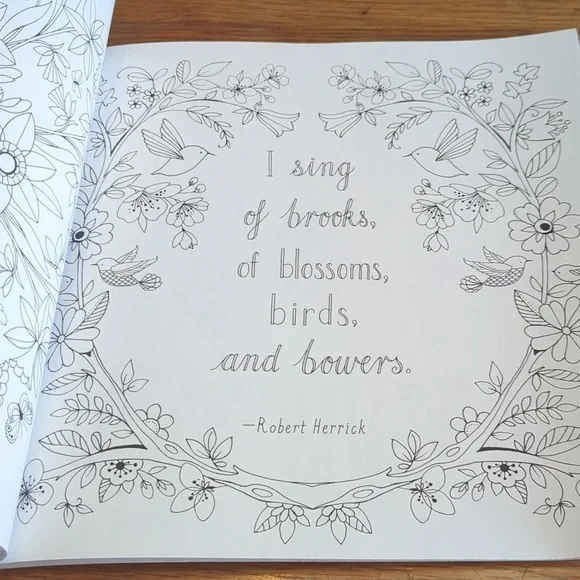 I sing
of brooks,
of blossoms,
birds,
and bowers.
—Robert Herrick